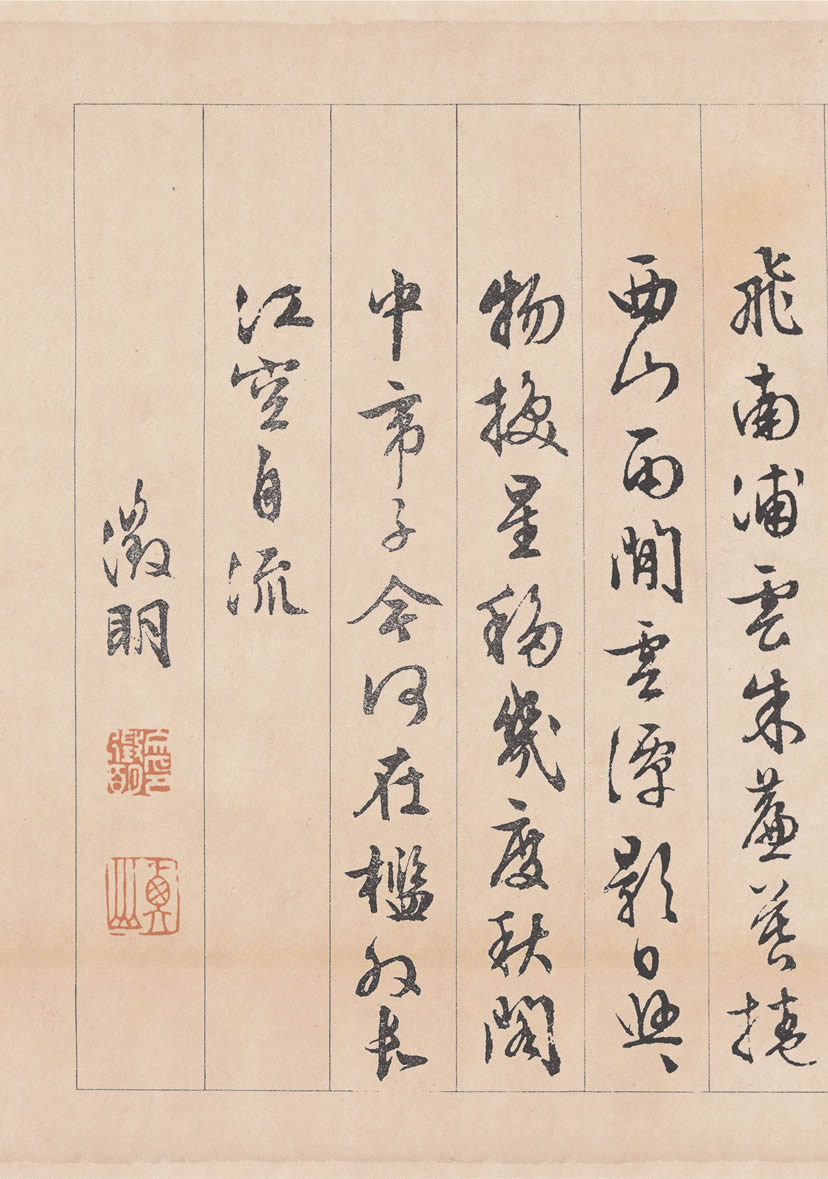 飛南浦雲朱簾暮捲
西山雨閒雲潭影日悠〻
物換星移幾度秋閣
中帝子今何在檻外長
江空自流
徵明
文徵明印
衡山